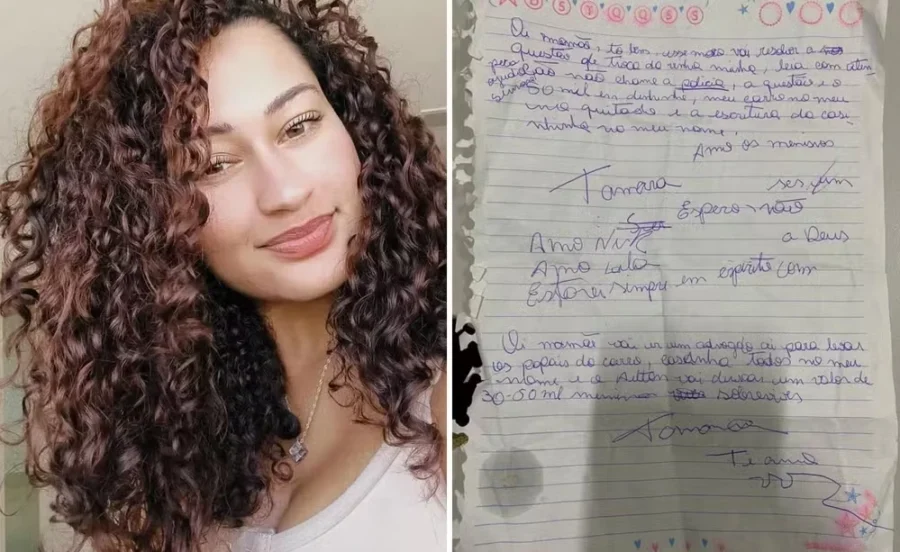 Oi mamãe, tô bem, esse moço vai resolver a
questão de troca da minha minha, leia com aten
não chame a policia, a questão é o
50 mil em dinheiro, meu carro no meu
quitado e a escritura da casi
nhinha no meu nome,
Amo os meninos
Tamara
Espero não
a Deus
Amo
Amo Lala
Estarei sempre em espirito com
Oi mamãe vai ir um advogado ai para levar
os papais do carro, casinha todos no meu
nome e o vai deixar um valor de
30-50 mil
Te amo